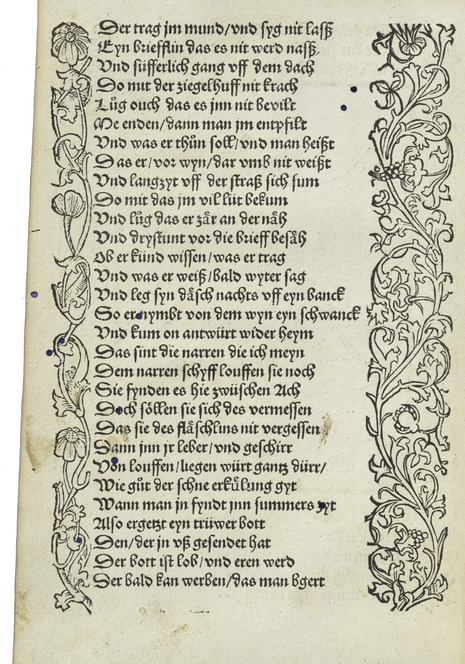 Der trag jm mund/vnd syg nit lasß
Eyn briefflin das es nit werd nasß
Vnd süfferlich gang vff dem dach
Do mit der ziegelhuff nit krach
Lůg ouch das es jnn nit bevilt
Me enden/dann man jm entpfilt
Vnd was er thůn soll/vnd man heißt
Das er/vor wyn/dar vmb nit weißt
Vnd langzyt vff der straß sich sum
So mit das jm vil lüt bekum
Vnd lůg das er zår an der nåh
Vnd drystunt vor die brieff besåh
Ob er künd wissen/was er trag
Vnd was er weiß/bald wyter sag
Vnd leg syn dåsch nachts vff eyn banck
So er nymbt von dem wyn eyn schwanck
Vnd kum on antwürt wider heym
Das sint die narren die ich meyn
Dem narren schyff louffen sie noch
Sie fynden es hie zwüschen Ach
Doch söllen sie sich des vermessen
Das sie des flåschluns nit vergessen
Dann jnn jr leber/vnd geschirr
Von louffen/liegen würt gantz dürr/
Wie gůt der schne erkůlung gyt
Wann man jn fyndt jnn summers zyt
Also ergetzt eyn trüwer bott
Den/der in vß gesendet hat
Der bott ist lob/vnd eren werd
Der bald kan werben/das man bgert